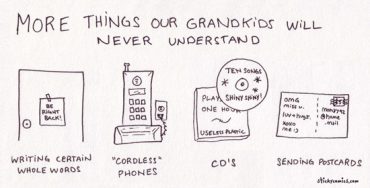 MORE THINGS OUR GRANDKIDS WILL
NEVER UNDERSTAND
BE
RIGHT
BACK!
WRITING CERTAIN
WHOLE WORDS
"CORDLESS"
PHONES
TEN SONGS
SHINY SHINY!
PLAY
ONE HOUR
USELESS PLASTIC
CD'S
omg
miss u.
luv + hugz.
xoxo
me :)
@home
.mail
SENDING POSTCARDS
stickycomics.com